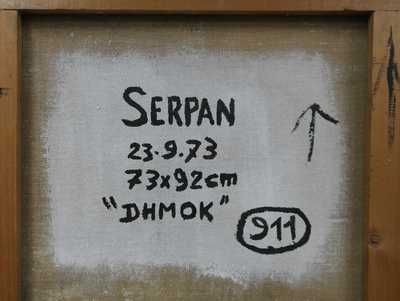 SERPAN
23.9.73
73x92cm
"DHMOK"
911